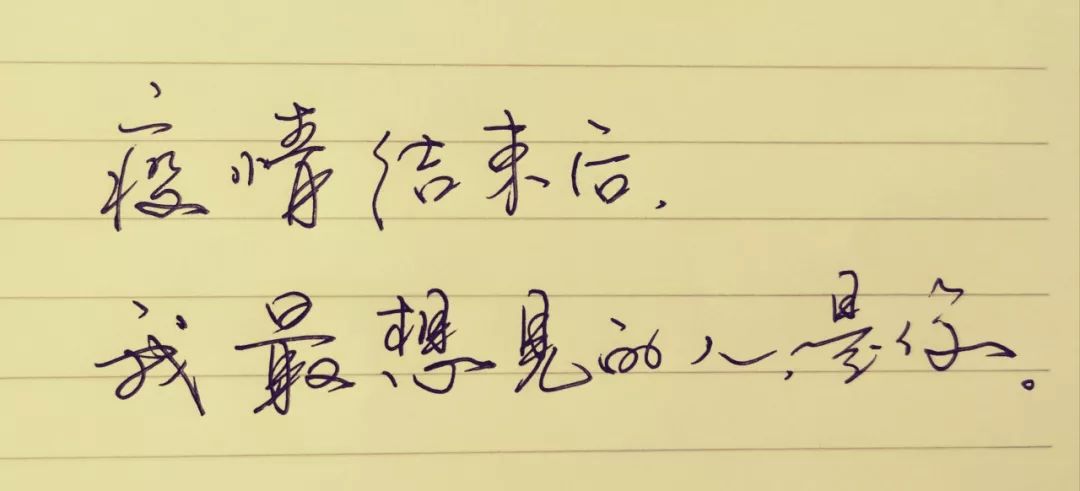 疫情结束后,
我最想见的人,是你。